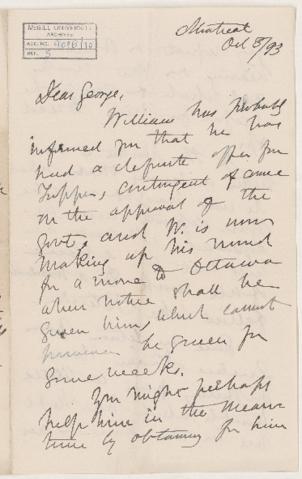 McGILL UNIVERSITY
ARCHIVES
ACC. NO.
REF.
Montreal
Oct 3/93
Dear George,
William has probably
informed you that he has
had a definite offer from
Tupper, contingent of course
on the approval of the
Govt, and W. is now
making up his mind
for a move to Ottawa
when notice shall be
given him, which cannot
however be given for
some weeks.
You might perhaps
help him in the mean
time by obtaining for him